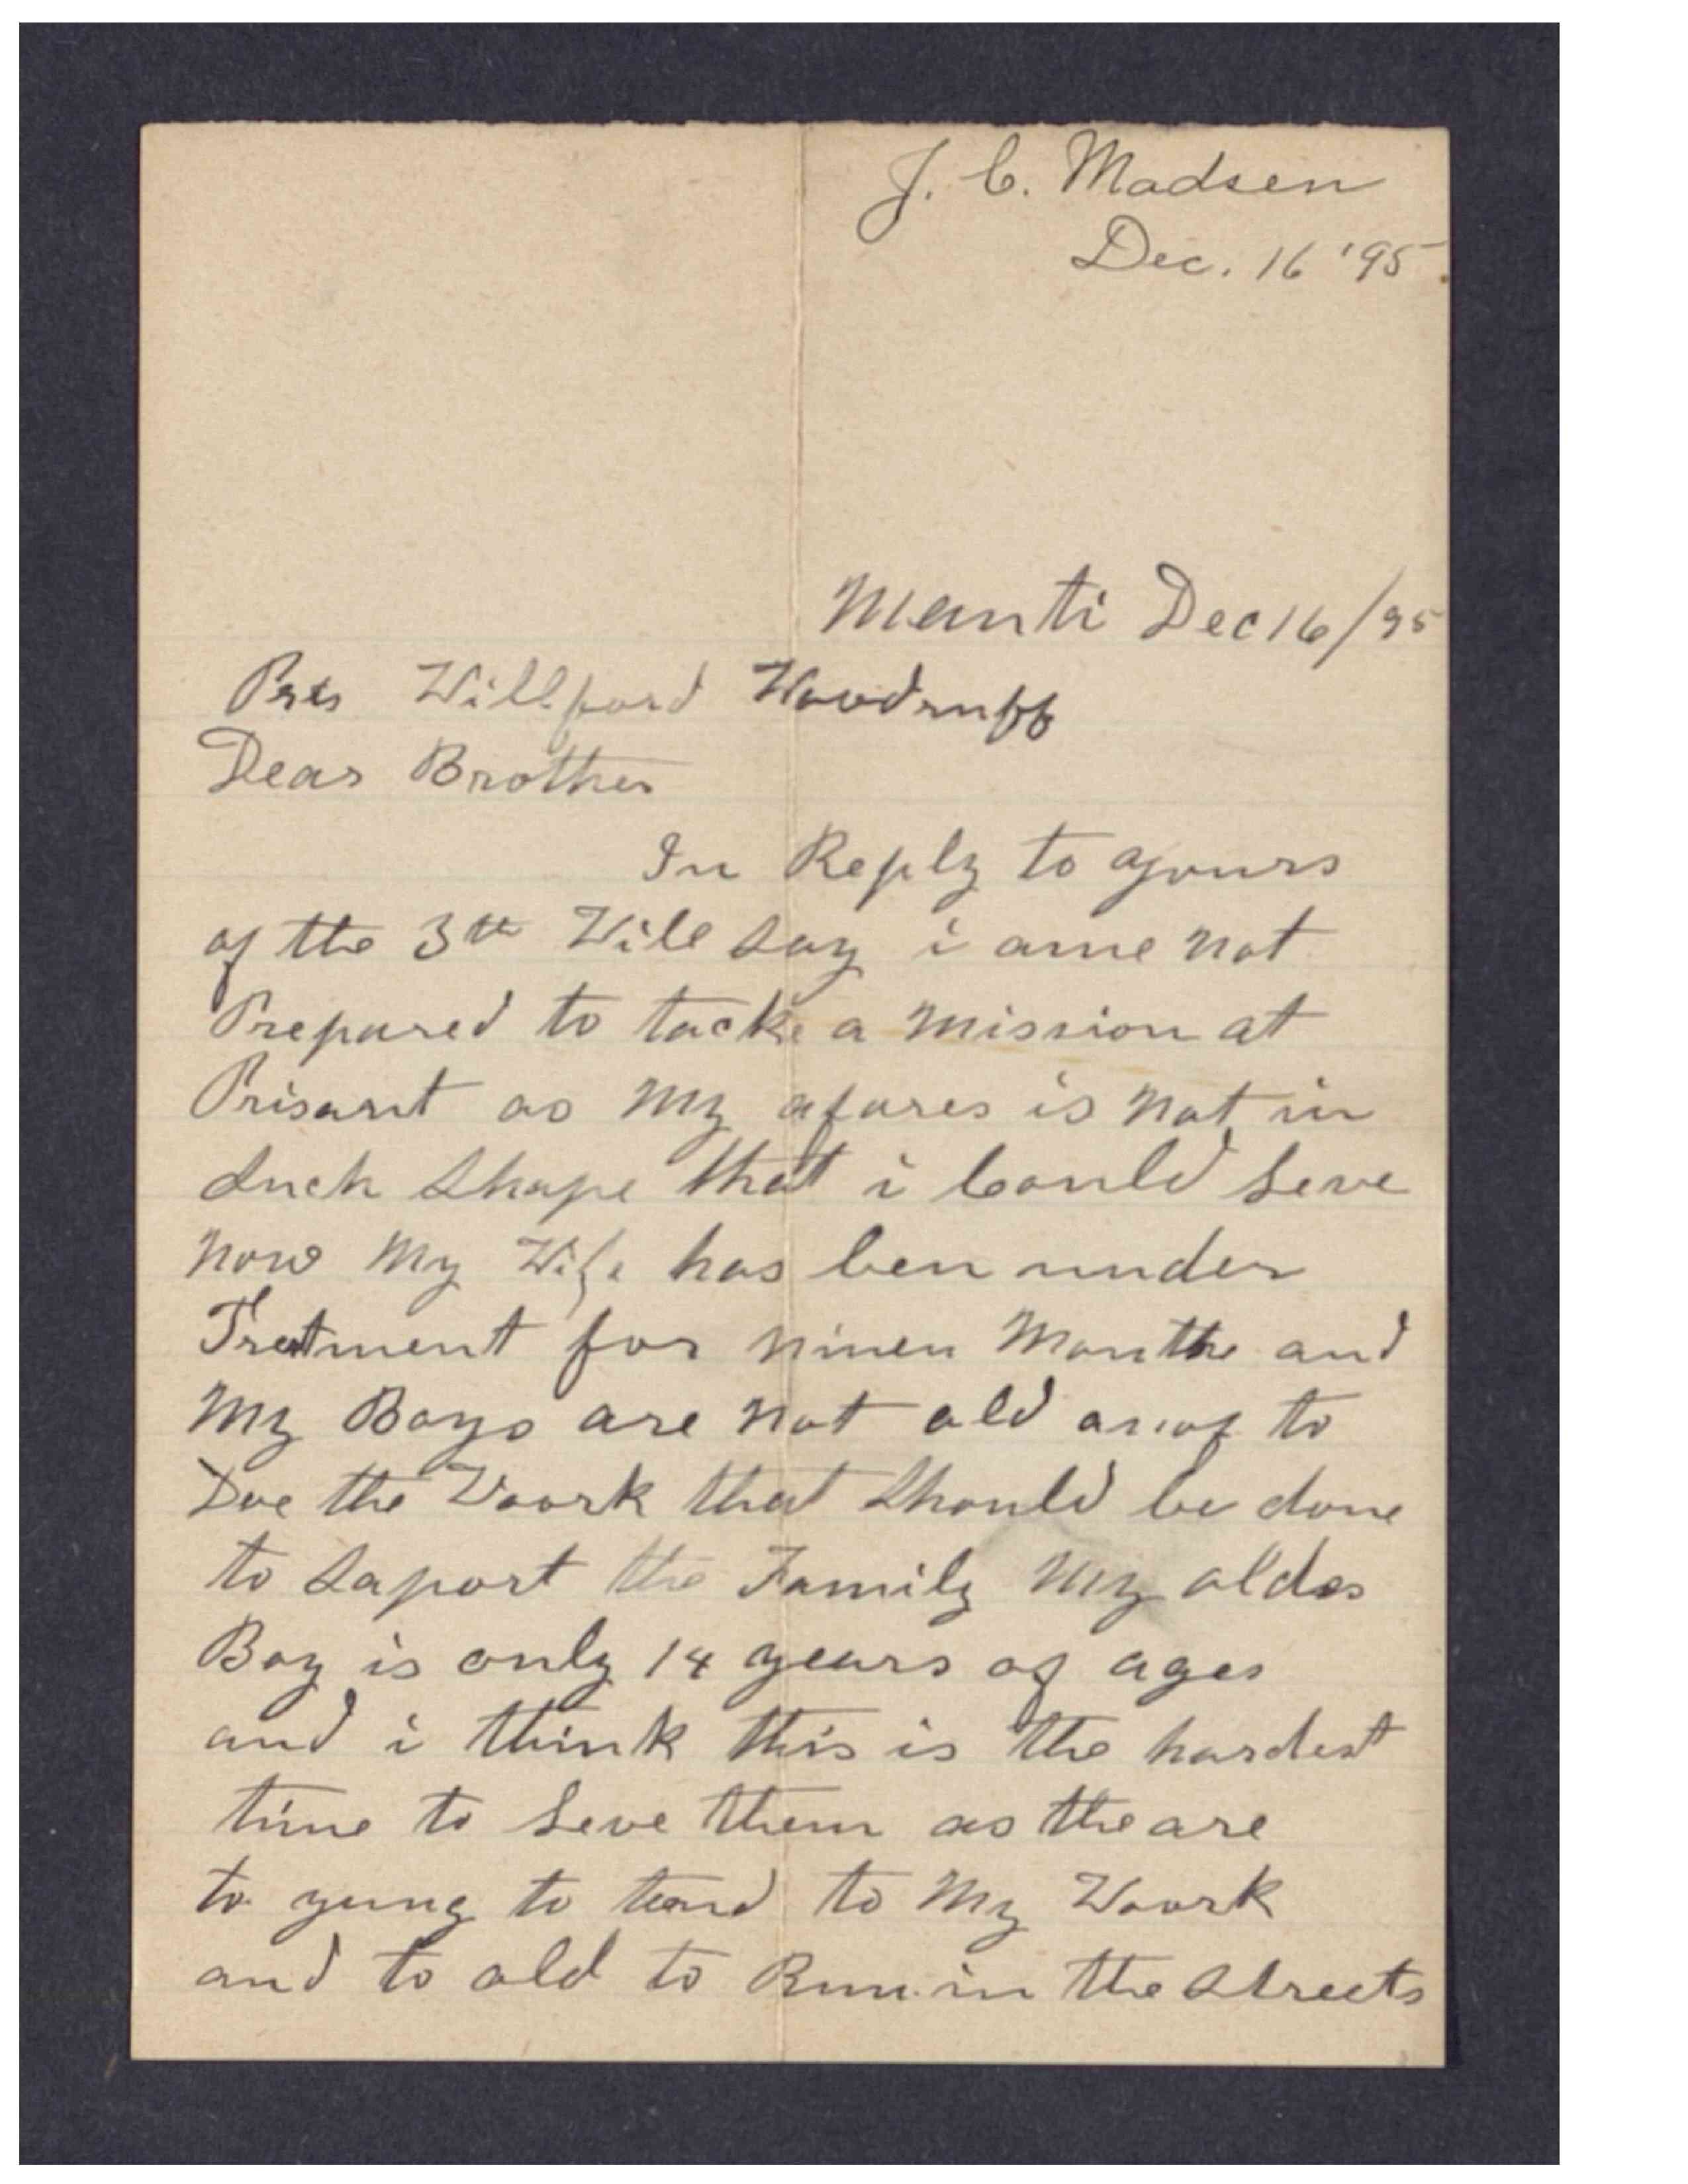 J. C. Madsen
Dec. 16 '95.
Manti Dec 16/95
Pres Willford Woodruff
Dear Brother
In Reply to yours
of the 3th Will say i ame not
Prepared to tacke a Mission at
Prisant as My afares is not in
such shape that i Could leve
now My Wife has ben under
Tretment for ninen Months and
My Boys are not old to
Doe the Woork that should be done
to saport the Family My oldes
Boy is only 14 years of ages
and i think this is the hardest
time to leve them as the are
to yung to tend to My Woork
and to old to Run in the streets